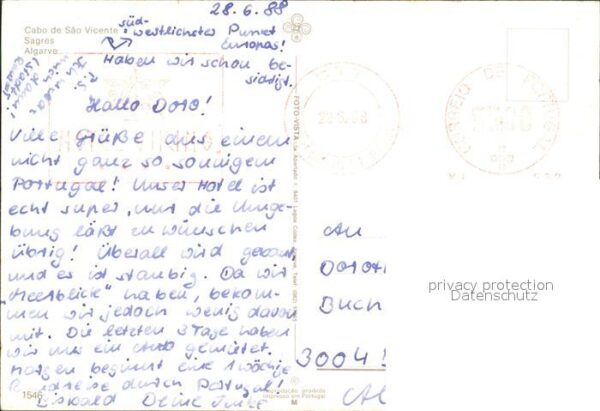 28.6.88
Cabo de São Vicente
Sagres
Algarve
süd-
westlichster Punkt
Europas!
Haben wir schon be-
sichtigt.
P.S.
Hallo Doro!
Viele Grüße aus einem
nicht ganz so sonnigem
Portugal! Unser Hotel ist
echt super, nur die Umge-
bung läßt zu wünschen
übrig! Überall wird gebaut
und es ist staubig. Da wir
"Meerblick" haben, bekom-
men wir jedoch wenig davon
mit. Die letzten 3 Tage haben
wir uns ein Auto gemietet.
Morgen beginnt eine 1 wöchige
Rundreise durch Portugal!
Bis bald Deine
1546
FOTO-VISTA
CORREIO DE PORTUGAL
An
Doroth
Buch
3004
privacy protection
Datenschutz
Reprodução proibida
Impresso em Portugal
M